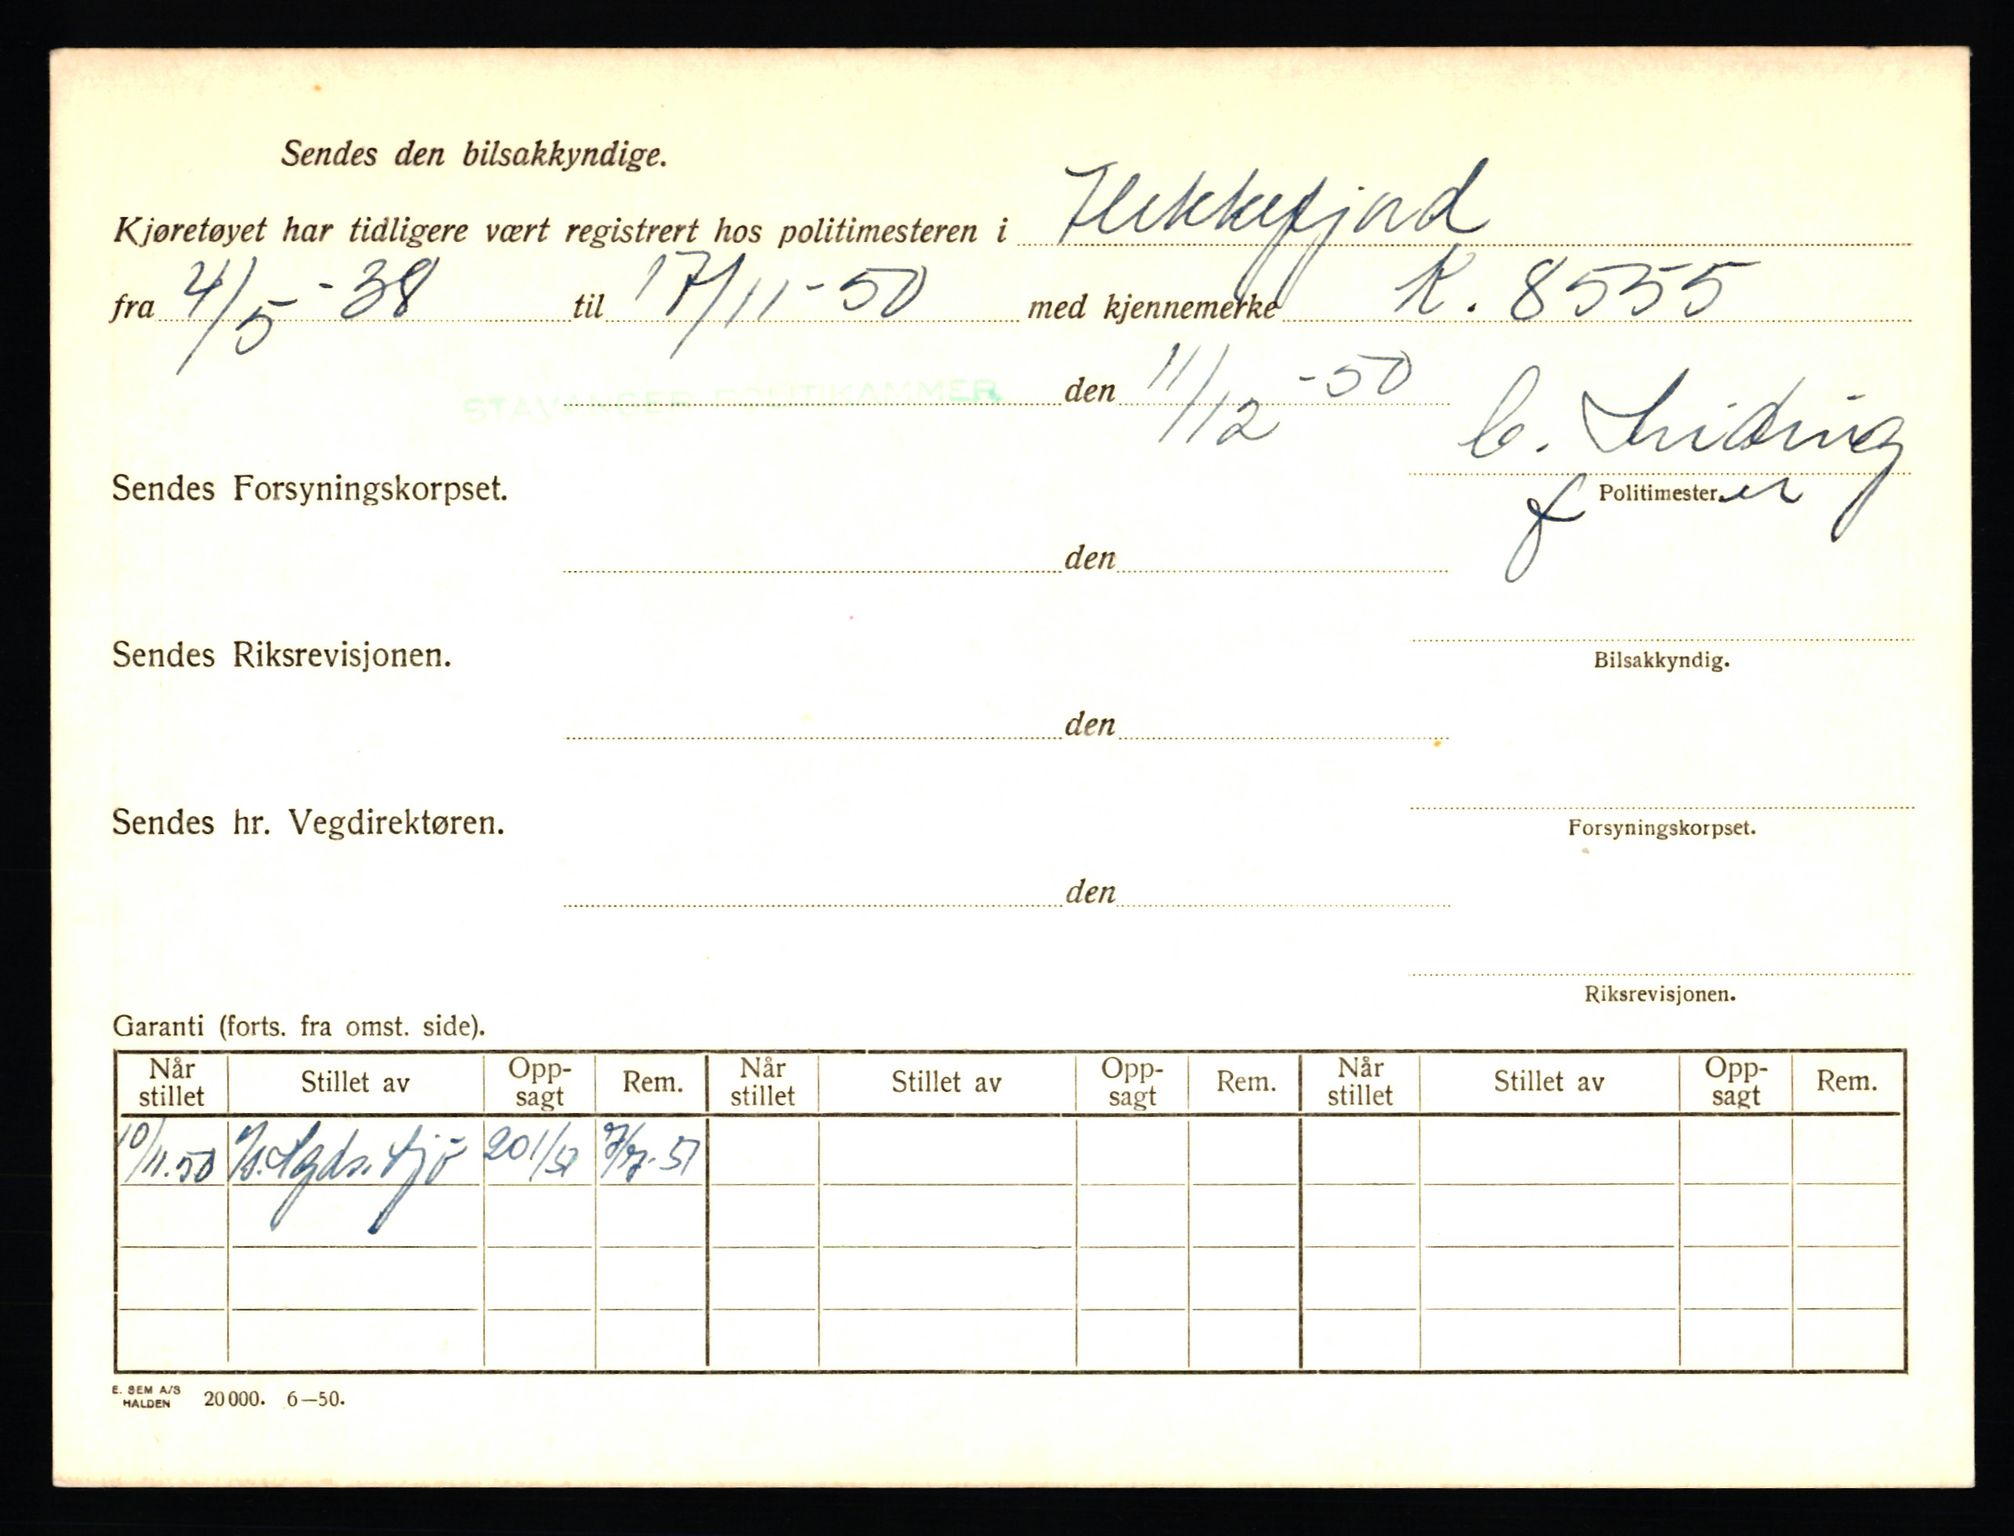 Sendes den bilsakkyndige.
Kjøretøyet har tidligere vært registrert hos politimesteren i Flekkefjord
fra 4/5 - 38 til 17/11 - 50 med kjennemerke K. 8555
STAVANGER POLITIKAMMER den 11/12 - 50
Sendes Forsyningskorpset.
Politimester
f er
den
Sendes Riksrevisjonen.
Bilsakkyndig.
den
Sendes hr. Vegdirektøren.
Forsyningskorpset.
den
Riksrevisjonen.
Garanti (forts. fra omst. side).
Når stillet Stillet av Opp-sagt Rem. Når stillet Stillet av Opp-sagt Rem. Når stillet Stillet av Opp-sagt Rem.
10/11.50 20 1/51
E. SEM A/S
HALDEN 20 000. 6—50.